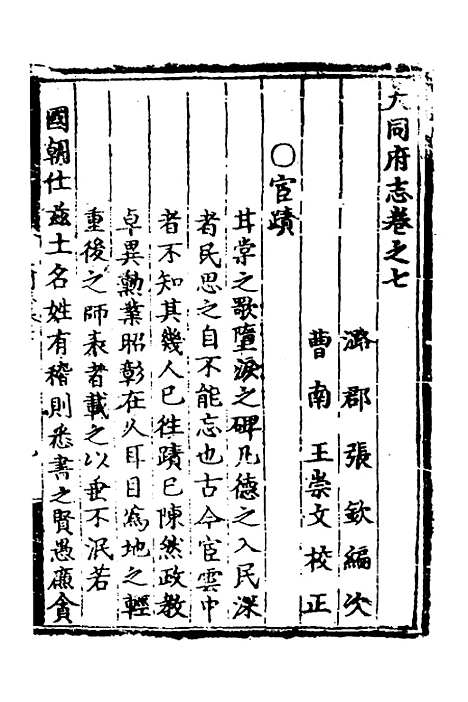 大同府志卷之七
潞郡張欽編次
曹南王崇文校正
○宦蹟
甘棠之歌墮淚之碑凡德之入民深
者民思之自不能忘也古今宦雲中
者不知其幾人已徃蹟已陳然政教
卓異勳業昭彰在人耳目為地之輕
重後之師表者載之以垂不泯若
國朝仕兹土名姓有稽則悉書之賢愚廉貪